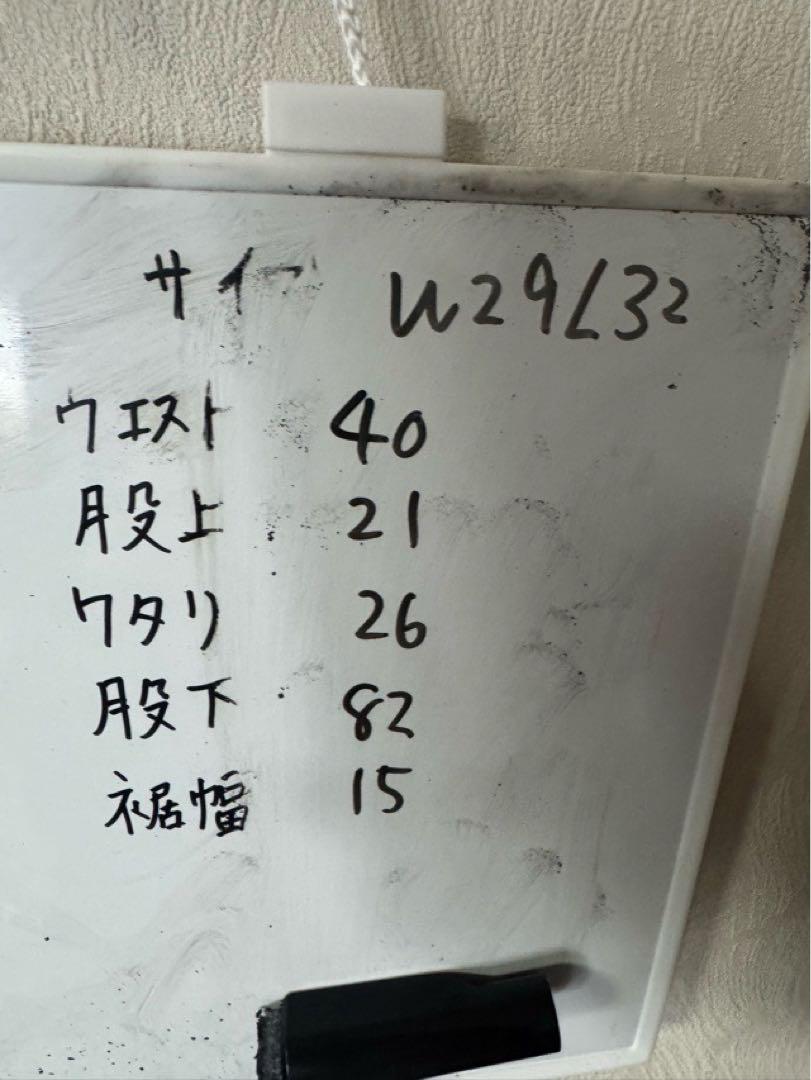 サイ W29L32
ウエスト 40
股上 21
ワタリ 26
股下 82
裾幅 15